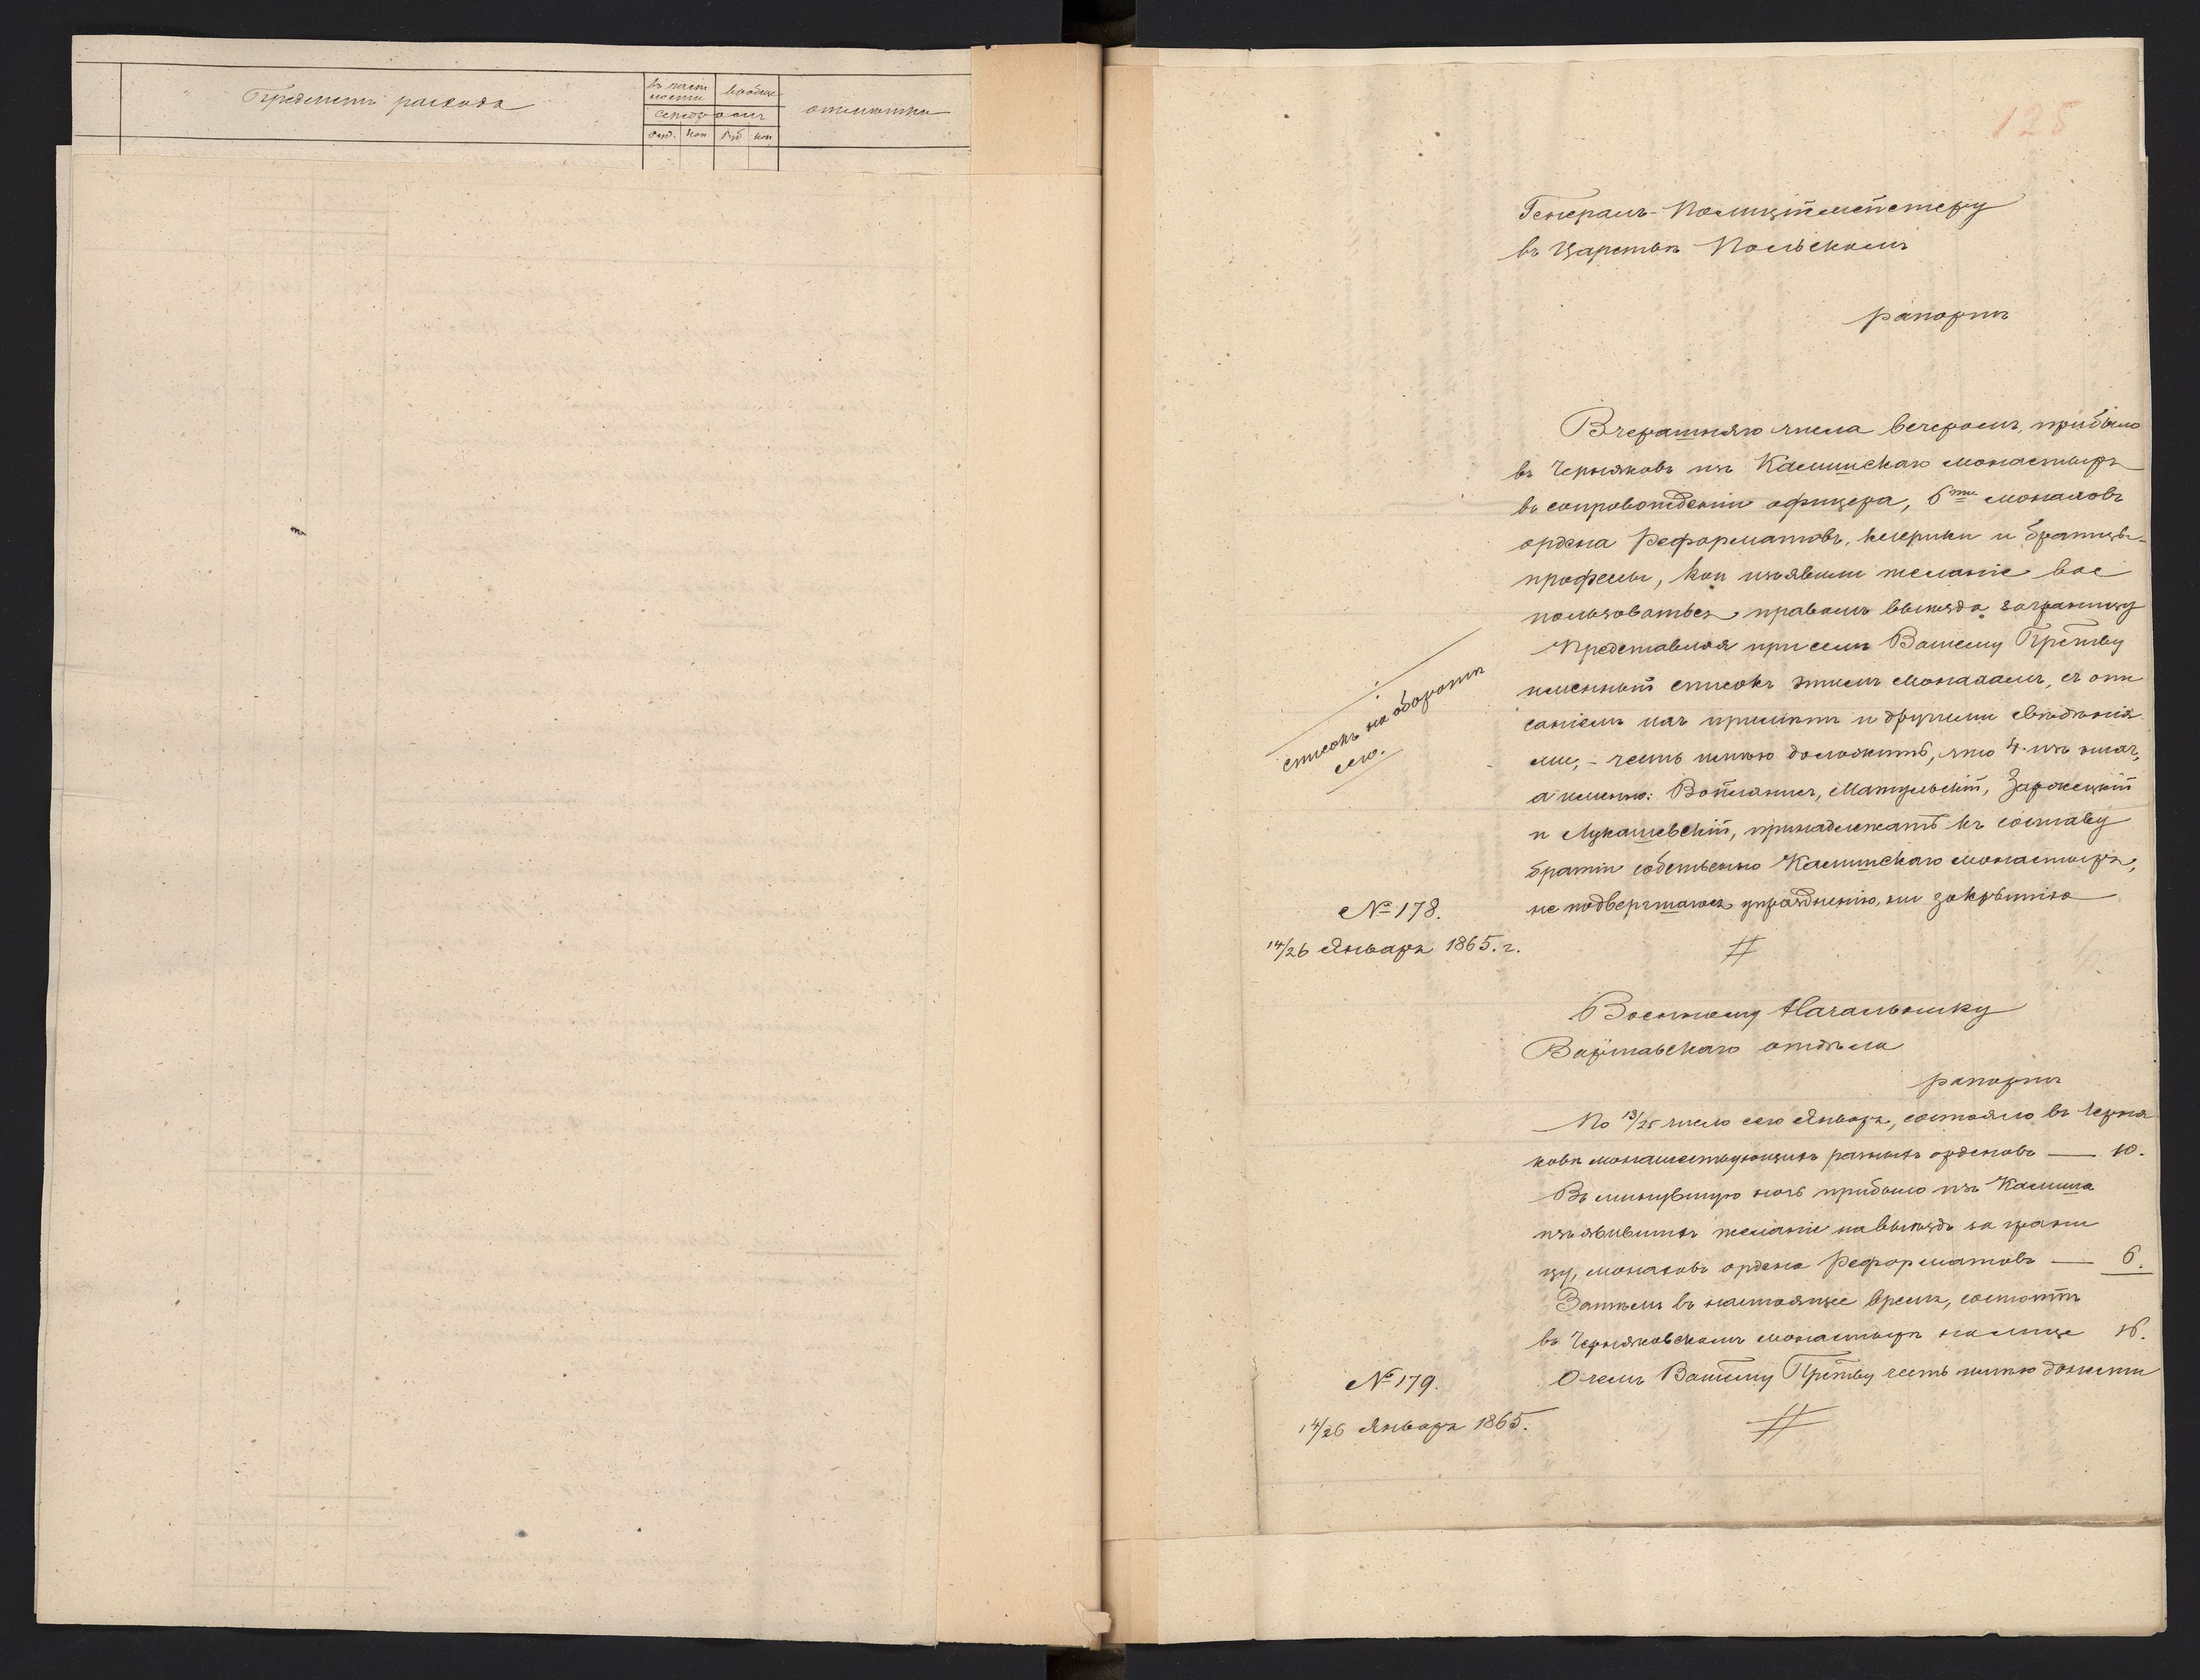 Предметъ расхода
въ част
ности
вообще
серебромъ
отметка
Руб. Коп Руб Коп
125
Генералъ-Полиціймейстеру
въ Царствѣ Польскомъ
рапортъ
Вчерашняго числа вечеромъ, прибыло
въ Черняковъ изъ Калишскаго монастыря
въ сопровожденіи офицера, 6ти монаховъ
ордена Реформатовъ, клерики и братцы-
профессы, кои изъявили желаніе вос
пользоваться правомъ выѣзда заграницу
Представляя при семъ Вашему Прству
именный списокъ этимъ монахамъ, съ опи
саніемъ ихъ примѣтъ и другими свѣдѣнія
ми, - честь имѣю доложить, что 4 изъ нихъ,
а именно: Матульскій, Заржецкій
и Лукашевскій, принадлежатъ къ составу
братіи собственно Калишскаго монастыря,
не подвергшагося упраздненію, ни закрытію
списокъ на оборотѣ
сего.
№ 178.
14/26 Января 1865. г.
Военному Начальнику
Варшавскаго отдѣла
рапортъ
По 13/25 число сего Января, состояло въ Черня
ковѣ монашествующихъ разныхъ орденовъ — 10.
Въ минувшую ночь прибыло изъ Калиша
изъявившихъ желаніе на выѣздъ за грани
цу, монаховъ ордена Реформатовъ — 6.
Затѣмъ въ настоящее время, состоитъ
въ Черняковскомъ монастырѣ на лице 16.
О чемъ Вашему Прству честь имѣю донести
№ 179.
14/26 Января 1865.